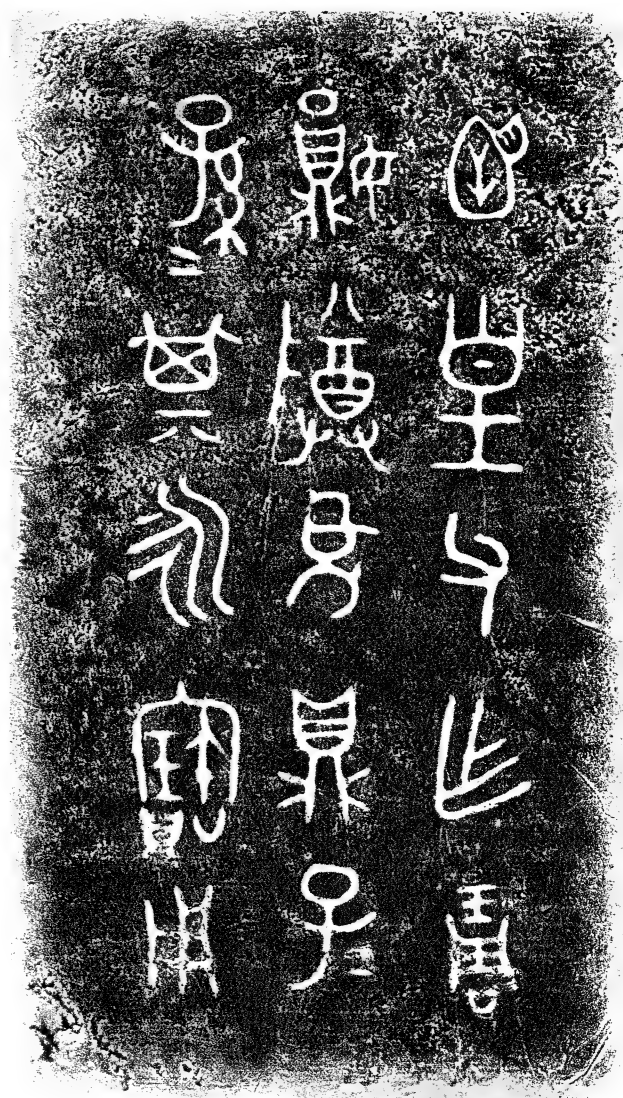 函皇父乍琱
娟尊兔鼎子=
孫=其永寶用